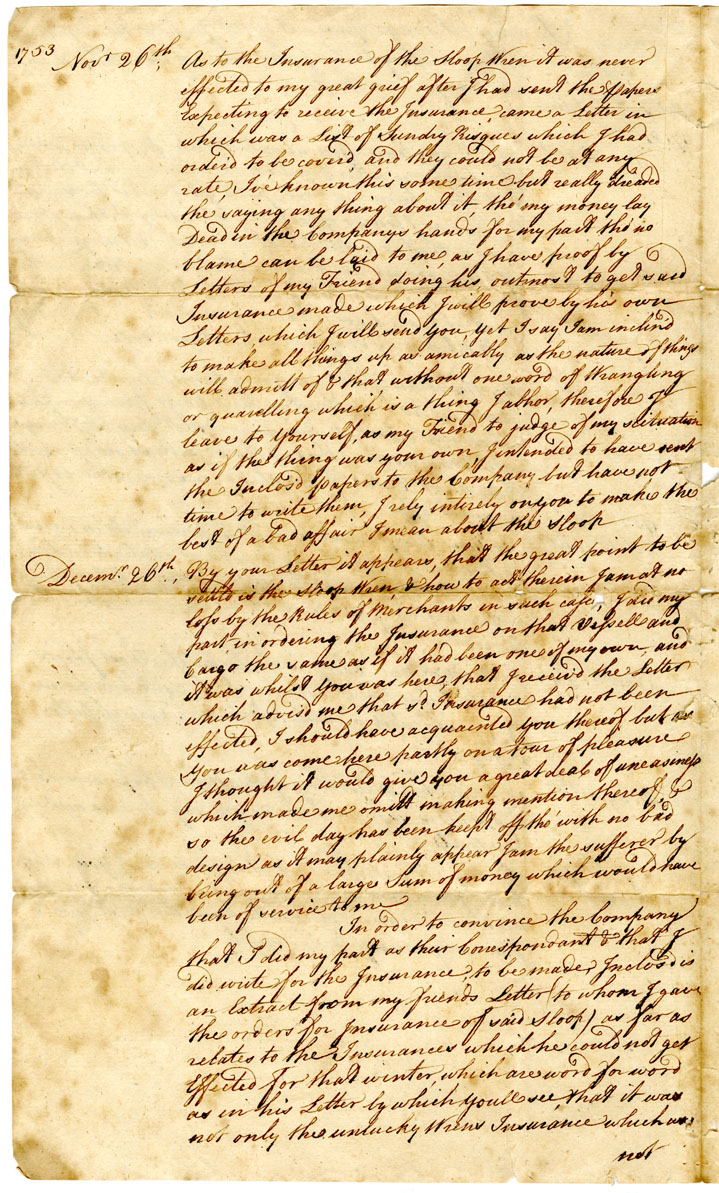 1753 Novr 26th, As to the Insurance of the Sloop Wren it was never
effected to my great grief after I had sent the Papers
Expecting to receive the Insurance came a Letter in
which was a List of Sundry Risques which I had
orderd to be coverd, and they could not be at any
rate, I've known this some time but really dreaded
the saying any thing about it, tho' my money lay
Dead in the Companys hands, for my part tho' no
blame can be laid to me, as I have proof by
Letters of my Friend doing his outmost to get said
Insurance made which I will prove by his own
Letters, which I will send you, yet I say I am inclind
to make all things up as amically as the nature of things
will admitt of & that without one word of Wrangling
or quarelling which is a thing I abhor, therefore I
leave to yourself, as my Friend to judge of my scituation
as if the thing was your own, I intended to have sent
the Inclosd papers to the Company but have not
time to write them, I rely intirely on you to make the
best of a bad affair I mean about the Sloop
Decemr. 26th, By your Letter it appears, that the great point to be
setld is the Sloop Wren, & how to act therein I am at no
loss by the Rules of Merchants in such case, I did my
part in ordering the Insurance on that Vessell and
Cargo the same as if it had been one of my own, and
it was whilst you was here, that I receivd the Letter
which advisd me that sd. Insurance had not been
effected, I should have acquainted you thereof, but as
you was come here partly on a tour of pleasure
I thought it would give you a great deal of uneasiness
which made me omitt making mention thereof, &
so the evil day has been kept off tho' with no bad
design as it may plainly appear I am the sufferer by
being out of a large Sum of money which would have
been of service to me
In order to convince the Company
that I did my part as their Correspondant & that I
did write for the Insurance, to be made, Inclosd is
an Extract from my friends Letter (to whom I gave
the orders for Insurance of said Sloop) as far as
relates to the Insurances which he could not get
Effected for that winter, which are word for word
as in his Letter by which youll see that it was
not only the unlucky Wrens Insurance which was
not